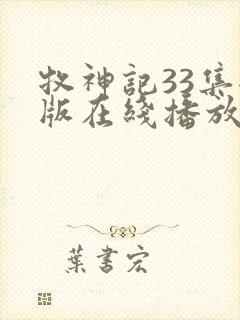 牧神記33集
版在綫播放
葉書宏